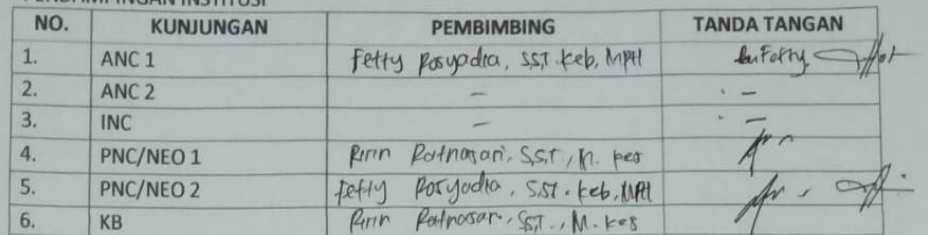 PENDAMPINGAN INSTITUSI
NO. KUNJUNGAN PEMBIMBING TANDA TANGAN
1. ANC 1 Fetty Rosyadia, SST. Keb, MPH bu Fetty
2. ANC 2 - -
3. INC - -
4. PNC/NEO 1 Ririn Ratnasari, S.ST, M. Kes
5. PNC/NEO 2 Fetty Rosyadia, S.ST. Keb, MPH
6. KB Ririn Ratnasari, SST., M. Kes